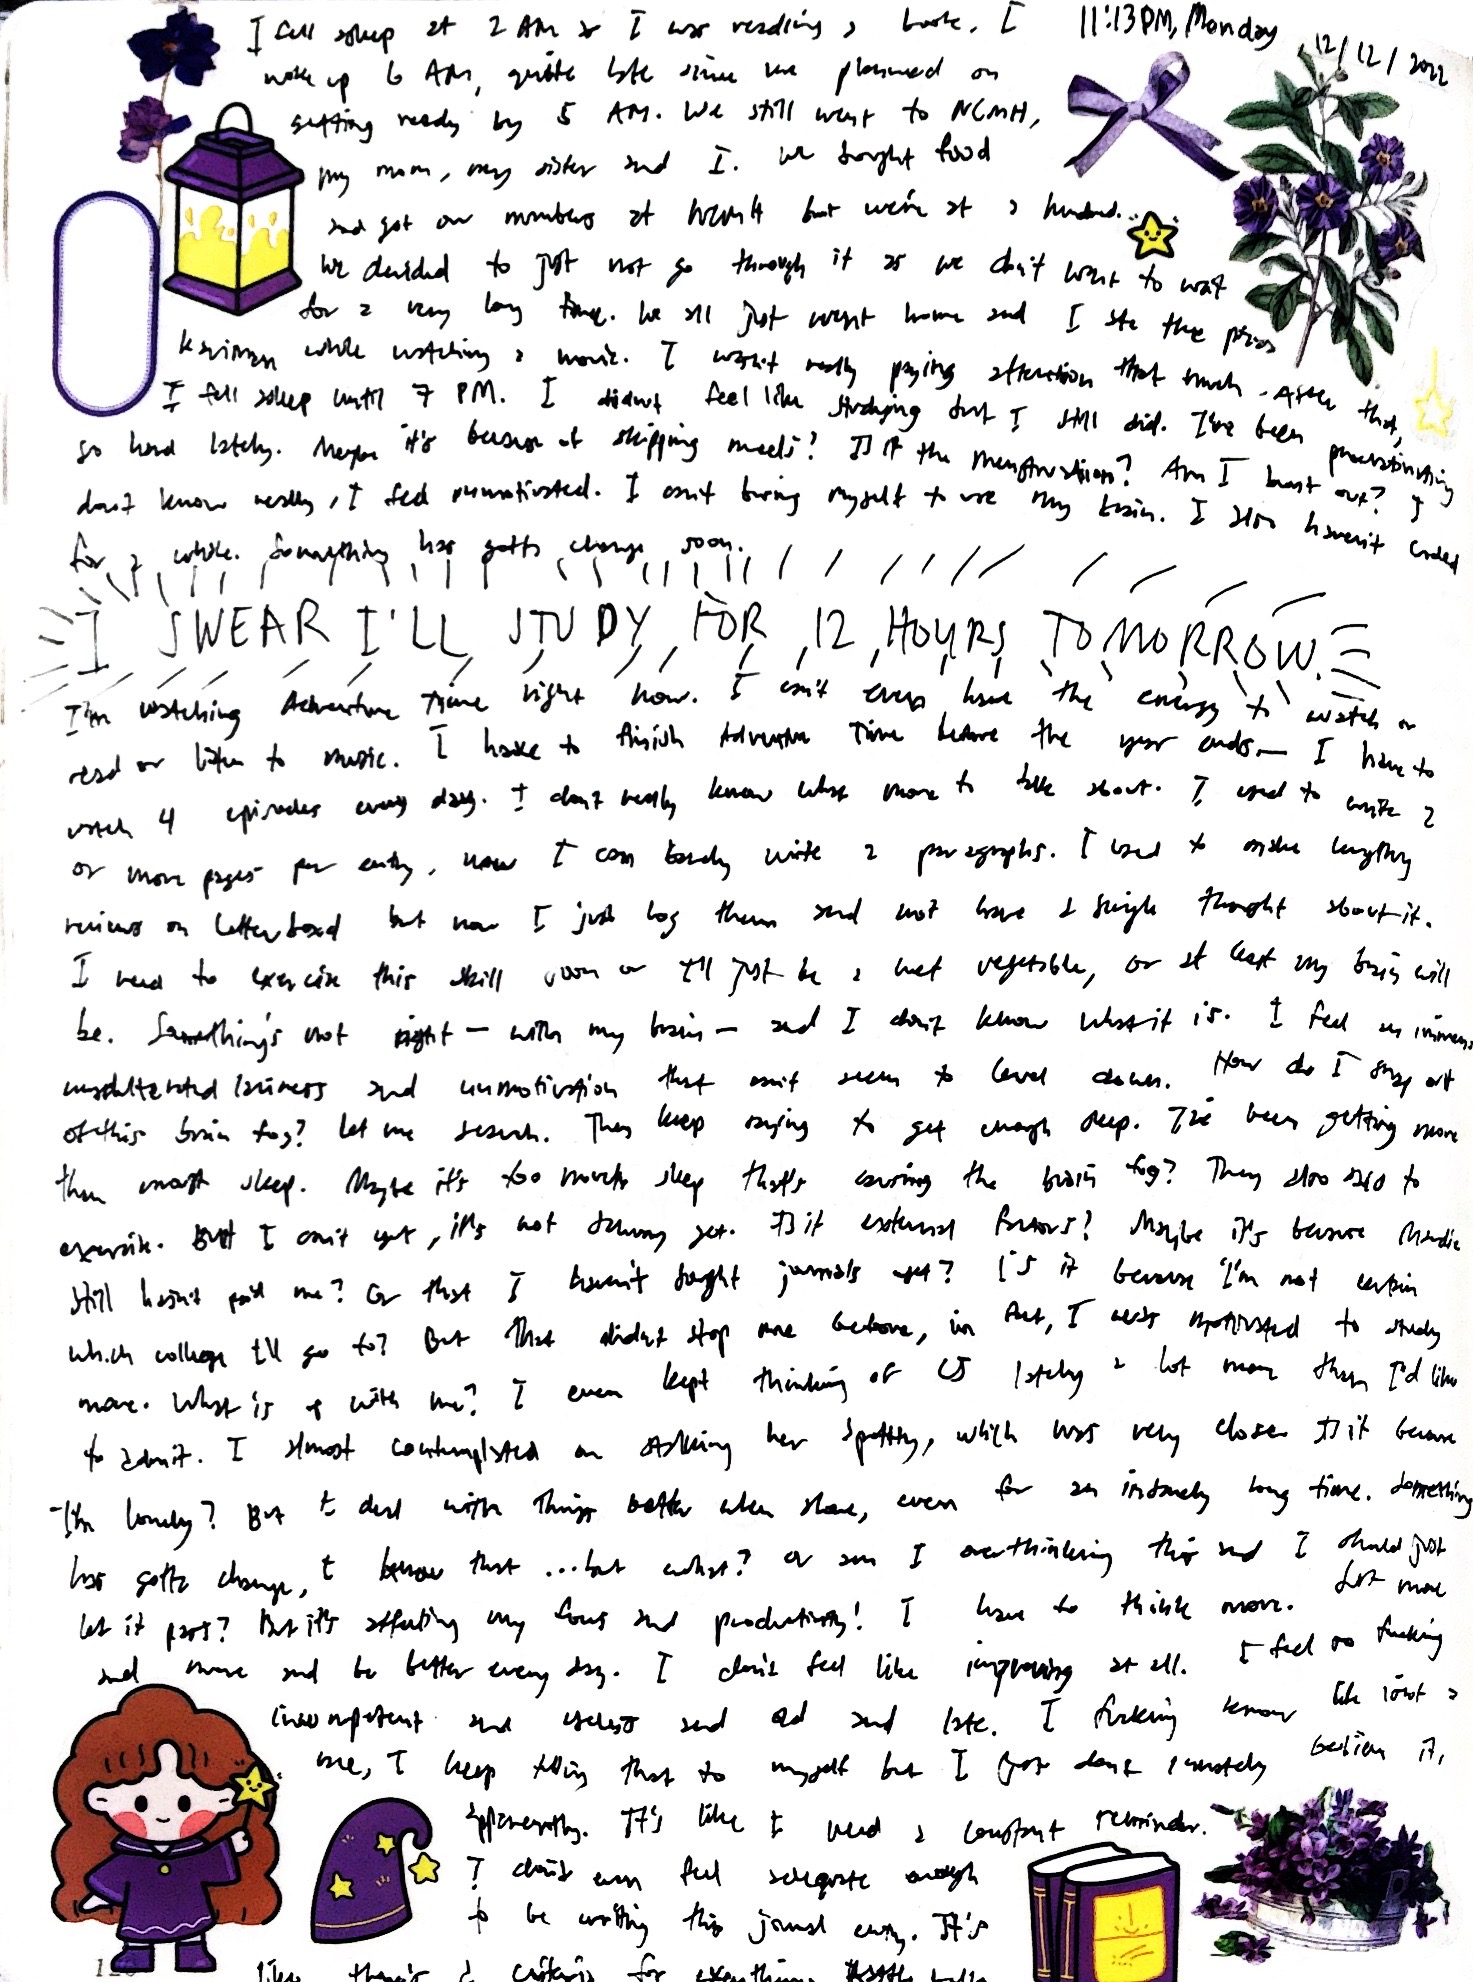 11:13 PM, Monday
12/12/2022
I fell asleep at 2 AM as I was reading a book. I
woke up 6 AM, quite late since we planned on
getting ready by 5 AM. We still went to NCMH,
my mom, my sister and I. We bought food
and got our numbers at NCMH but we're at a hundred.
We decided to just not go through it as we don't want to wait
for a very long time. We all just went home and I ate the pizza
while watching a movie. I wasn't really paying attention that much. After that,
I fell asleep until 7 PM. I didn't feel like studying but I still did. I've been procrastinating
so hard lately. Maybe it's because of skipping meals? Is it the menstruation? Am I burnt out? I
don't know really, I feel unmotivated. I can't bring myself to use my brain. I also haven't coded
for a while. Something has gotta change soon.
I SWEAR I'LL STUDY FOR 12 HOURS TOMORROW.
I'm watching Adventure Time right now. I can't even have the energy to watch or
read or listen to music. I have to finish Adventure Time before the year ends— I have to
watch 4 episodes every day. I don't really know what more to talk about. I used to write 2
or more pages per entry, now I can barely write 2 paragraphs. I used to make lengthy
reviews on letterboxd but now I just log them and not have a single thought about it.
I need to exercise this skill soon or I'll just be a wet vegetable, or at least my brain will
be. Something's not right — with my brain — and I don't know what it is. I feel an immense
unadulterated laziness and unmotivation that can't seem to level down. How do I snap out
of this brain fog? Let me search. They keep saying to get enough sleep. I've been getting more
than enough sleep. Maybe it's too much sleep that's causing the brain fog? They also said to
exercise. But I can't yet, it's not January yet. Is it external factors? Maybe it's because
still hasn't paid me? Or that I haven't bought journals yet? Is it because I'm not certain
which college I'll go to? But that didn't stop me before, in fact, I was motivated to study
more. What is up with me? I even kept thinking of CJ lately a lot more than I'd like
to admit. I almost contemplated on stalking her Spotify, which was very close. Is it because
I'm lonely? But I deal with things better when alone, even for an insanely long time. Something
has gotta change, I know that ...but what? Or am I overthinking this and I should just
let it pass? But it's affecting my focus and productivity! I have to think more. Get more
and more and be better every day. I don't feel like improving at all. I feel so fucking
incompetent and useless and old and late. I fucking know like what a
me, I keep telling that to myself but I just don't believe it,
apparently. It's like I need a constant reminder.
I don't even feel adequate enough
to be writing this journal entry. It's
like there's a criteria for everything